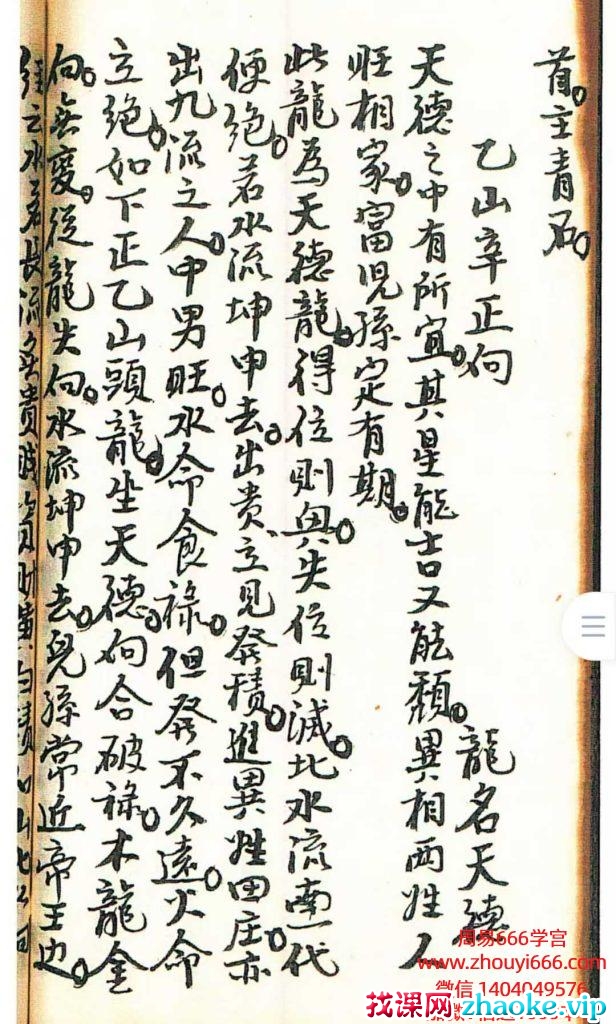 首。主青石。
乙山辛正向
龍名天德
天德之中有所宜。其星能吉又能頽。異相兩姓人
旺相家。富児孫定有期。
此龍為天德龍。得位則興。失位則滅。北水流南一代
便絶。若水流坤申去。出贵。立見發積。進異姓田庄。亦
出九流之人。中男旺。水命食禄。但發不久遠。火命
立绝。如下正乙山頭龍。坐天德。向合破禄。木龍金
向。無変。從龍失向。水流坤申去。兒孫常近帝王边。
之水若長流
周易666学宫
www.zhouyi666.com
微信 1404049576
找课网 zhaoke.vip